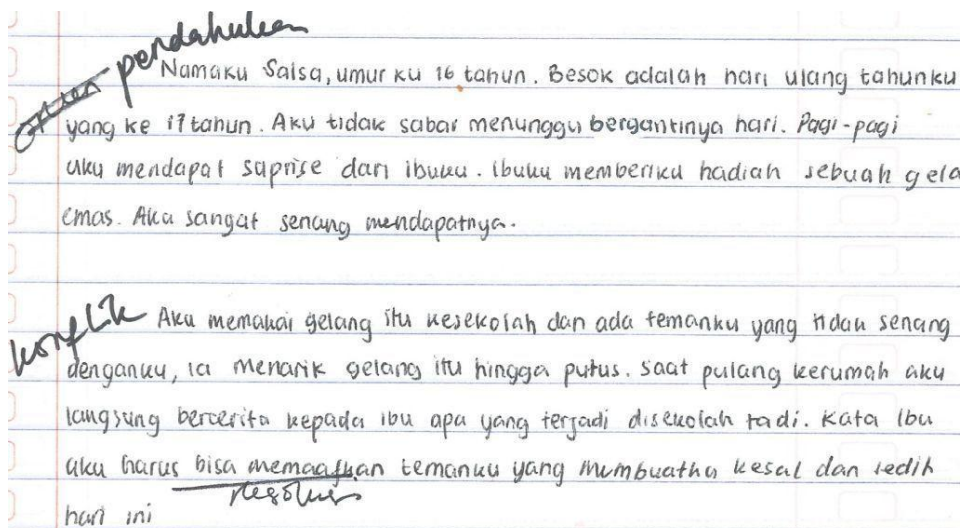 pendahuluan
Namaku Salsa, umur ku 16 tahun. Besok adalah hari ulang tahunku
yang ke 17 tahun. Aku tidak sabar menunggu bergantinya hari. Pagi-pagi
aku mendapat saprise dari ibuku. Ibuku memberiku hadiah sebuah gela
emas. Aku sangat senang mendapatnya.
konflik
Aku memakai gelang itu kesekolah dan ada temanku yang tidak senang
denganku, ia menarik gelang itu hingga putus. Saat pulang kerumah aku
langsung bercerita kepada ibu apa yang terjadi disekolah tadi. Kata Ibu
aku harus bisa memaafkan temanku yang membuatku kesal dan sedih
resolusi
hari ini